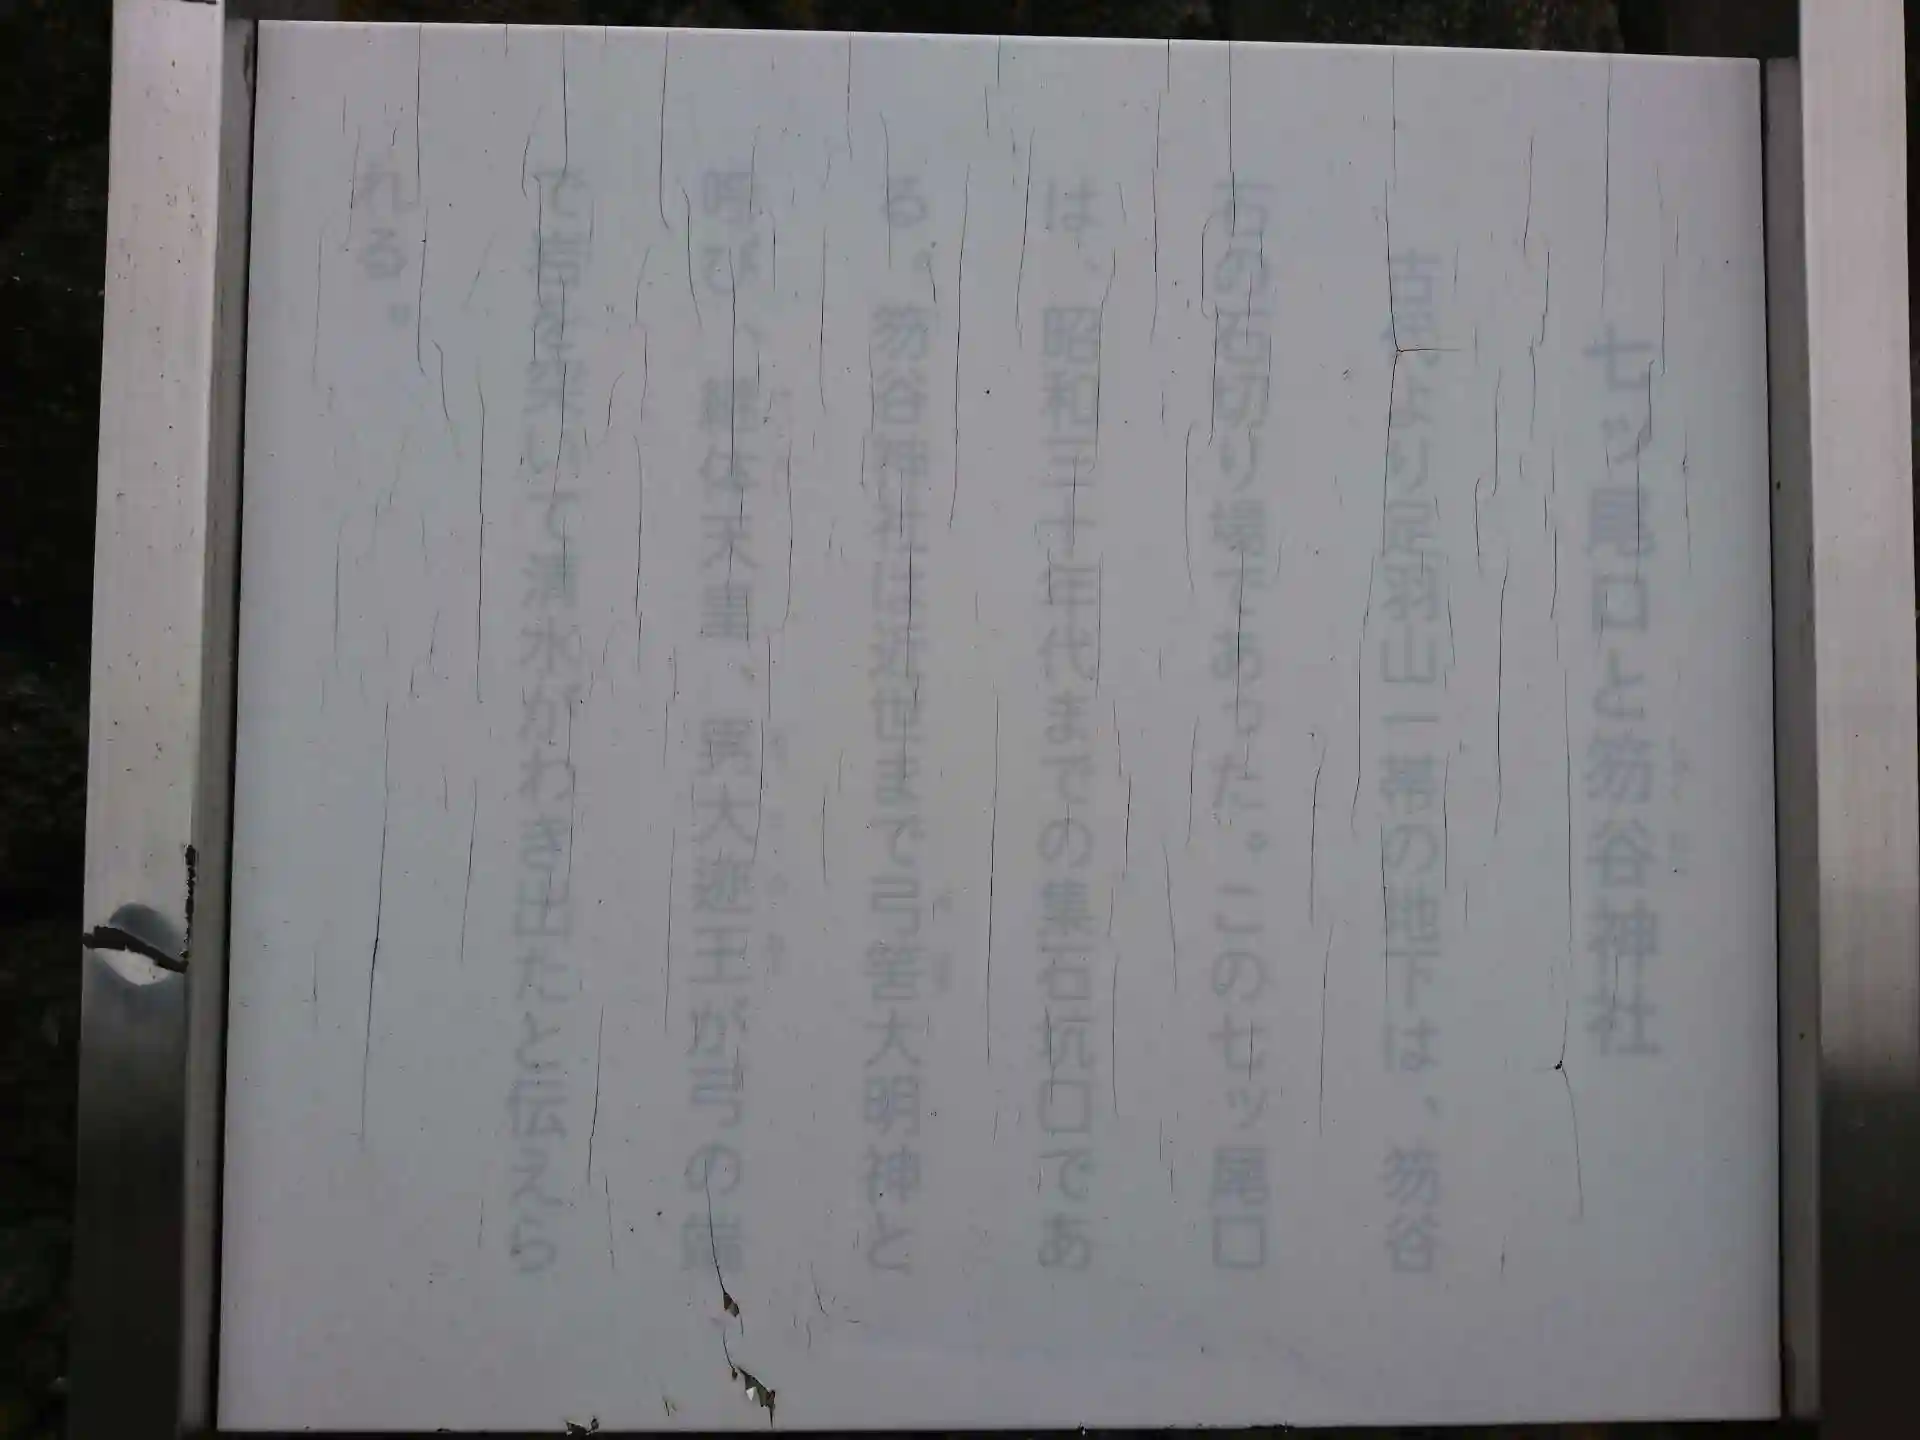 七ッ尾口と笏谷神社
古代より足羽山一帯の地下は、笏谷
石の石切り場であった。この七ッ尾口
は、昭和三十年代までの集石坑口であ
る。笏谷神社は近世まで弓筈大明神と
呼び、継体天皇、男大迹王が弓の端
で岩を築いて清水がわき出たと伝えら
れる。